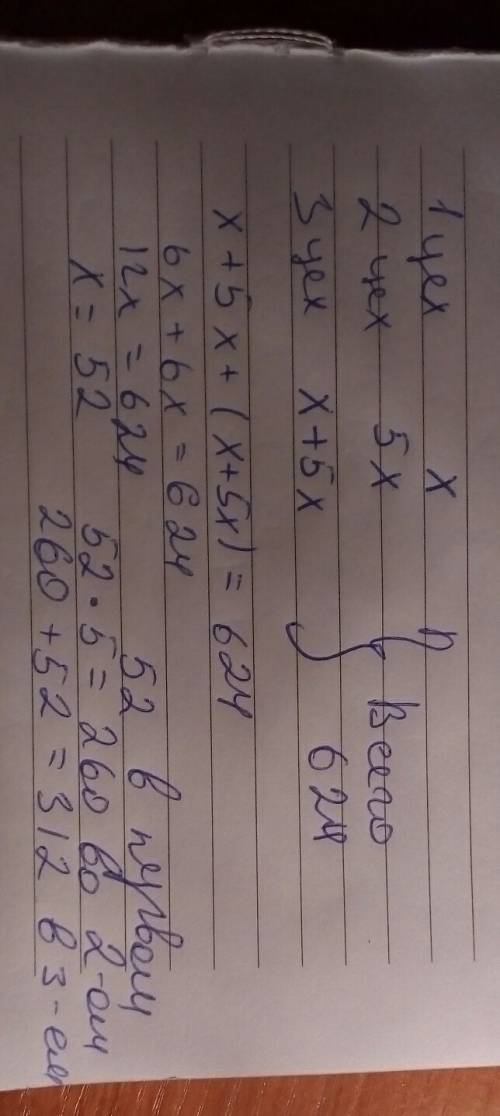 1 цех x
2 цех 5x } Всего
3 цех x+5x 624
x + 5x + (x+5x) = 624
6x + 6x = 624
12x = 624
x = 52 52 в первом
52 · 5 = 260 во 2-ом
260 + 52 = 312 в 3-ем